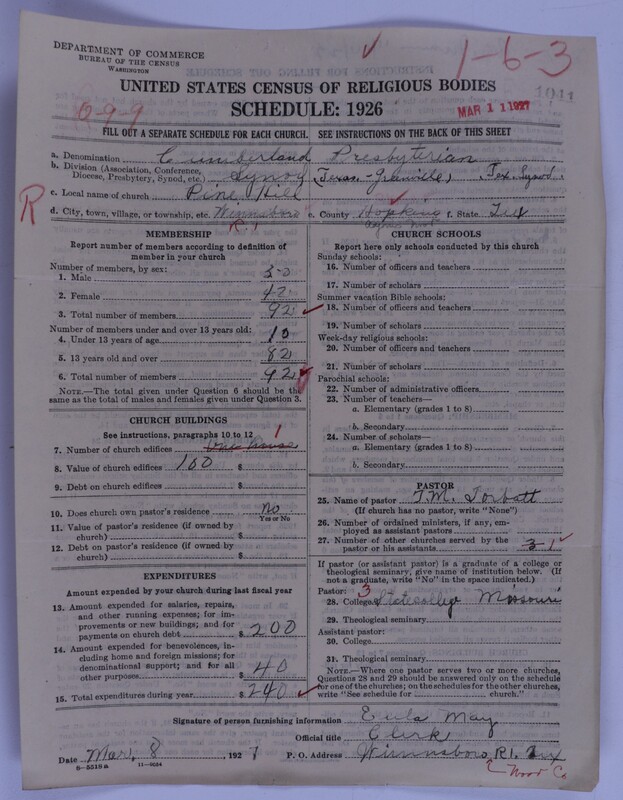 DEPARTMENT OF COMMERCE
BUREAU OF THE CENSUS
WASHINGTON
1-6-3
UNITED STATES CENSUS OF RELIGIOUS BODIES
SCHEDULE: 1926
0-9-9
MAR 11 1927
1041
FILL OUT A SEPARATE SCHEDULE FOR EACH CHURCH. SEE INSTRUCTIONS ON THE BACK OF THIS SHEET
a. Denomination Cumberland Presbyterian
b. Division (Association, Conference, Diocese, Presbytery, Synod, etc.) Synod (Texas-Greenville) Tex Synod
R
c. Local name of church Pine Hill
d. City, town, village, or township, etc. Winnsboro R.1 e. County Hopkins f. State Tex
MEMBERSHIP
Report number of members according to definition of
member in your church
Number of members, by sex:
1. Male 50
2. Female 42
3. Total number of members 92
Number of members under and over 13 years old:
4. Under 13 years of age 10
5. 13 years old and over 82
6. Total number of members 92
NOTE.—The total given under Question 6 should be the
same as the total of males and females given under Question 3.
CHURCH BUILDINGS
See instructions, paragraphs 10 to 12
7. Number of church edifices 1
8. Value of church edifices 100 $
9. Debt on church edifices $
10. Does church own pastor's residence No
Yes or No
11. Value of pastor's residence (if owned by
church) $
12. Debt on pastor's residence (if owned by
church) $
EXPENDITURES
Amount expended by your church during last fiscal year
13. Amount expended for salaries, repairs,
and other running expenses; for im-
provements or new buildings; and for
payments on church debt $ 200
14. Amount expended for benevolences, in-
cluding home and foreign missions; for
denominational support; and for all
other purposes $ 40
15. Total expenditures during year $ 240
CHURCH SCHOOLS
Report here only schools conducted by this church
Sunday schools:
16. Number of officers and teachers
17. Number of scholars
Summer vacation Bible schools:
18. Number of officers and teachers
19. Number of scholars
Week-day religious schools:
20. Number of officers and teachers
21. Number of scholars
Parochial schools:
22. Number of administrative officers
23. Number of teachers—
a. Elementary (grades 1 to 8)
b. Secondary
24. Number of scholars—
a. Elementary (grades 1 to 8)
b. Secondary
PASTOR
25. Name of pastor T.M. Torbett
(If church has no pastor, write "None")
26. Number of ordained ministers, if any, em-
ployed as assistant pastors
27. Number of other churches served by the
pastor or his assistants 3-1
If pastor (or assistant pastor) is a graduate of a college or
theological seminary, give name of institution below. (If
not a graduate, write "No" in the space indicated.)
Pastor: 3
28. College State college Missouri
29. Theological seminary
Assistant pastor:
30. College
31. Theological seminary
NOTE.—Where one pastor serves two or more churches,
Questions 28 and 29 should be answered only on the schedule
for one of the churches; on the schedules for the other churches,
write "See schedule for church."
Signature of person furnishing information Eula May
Official title Clerk
Date Mar, 8 1927 P. O. Address Winnsboro R1. Tex
8-5518a 11-9064
Wood Co